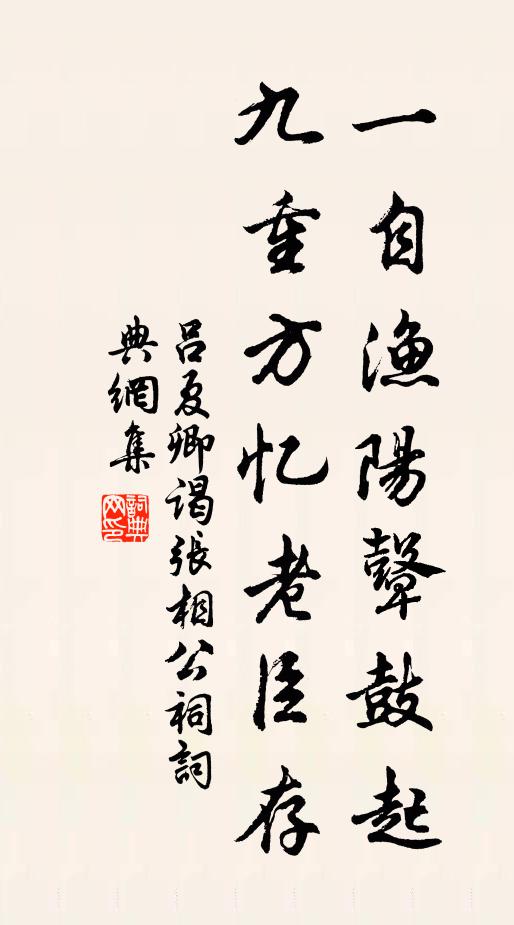 一自漁陽鼙鼓起
九重方忆老臣存
吕夏卿谒張相公祠詞
典網集
詞典
网印